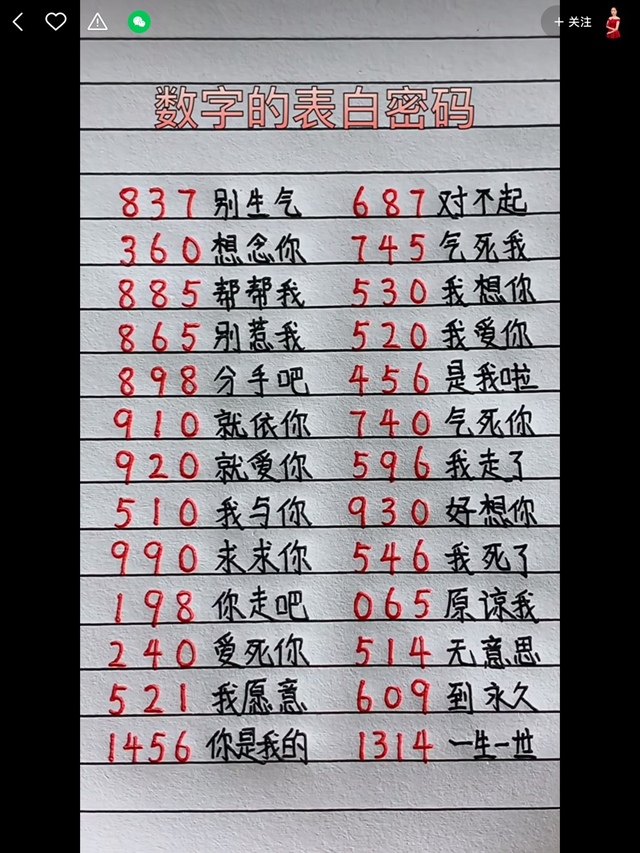 + 关注
数字的表白密码
837 别生气 687 对不起
360 想念你 745 气死我
885 帮帮我 530 我想你
865 别惹我 520 我爱你
898 分手吧 456 是我啦
910 就依你 740 气死你
920 就爱你 596 我走了
510 我与你 930 好想你
990 求求你 546 我死了
198 你走吧 065 原谅我
240 爱死你 514 无意思
521 我愿意 609 到永久
1456 你是我的 1314 一生一世